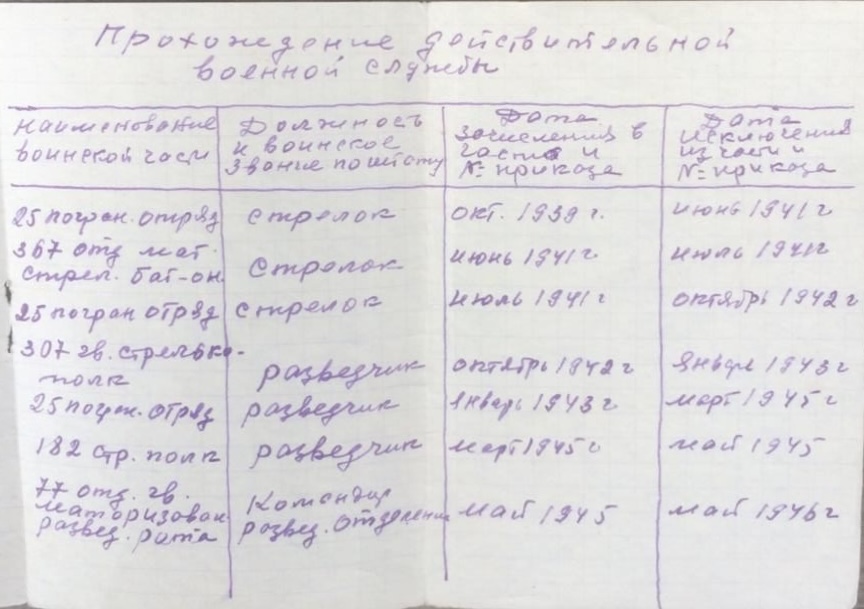 Прохождение действительной
военной службы
наименование
воинской части
Должность
и воинское
звание по штату
Дата
зачисления в
часть и
№ приказа
Дата
исключения
из части и
№ приказа
25 погран. отряд стрелок окт. 1939 г. июнь 1941 г
367 отд мат.
стрел. бат-он. стрелок июнь 1941 г. июль 1941 г
25 погран отряд стрелок июль 1941 г октябрь 1942 г
307 гв. стрелько-
полк разведчик октябрь 1942 г январь 1943 г
25 погран. отряд разведчик январь 1943 г март 1945 г
182 стр. полк разведчик март 1945 г май 1945
77 отд. гв.
маторизован.
развед. рота
Командир
развед. отделения май 1945 май 1946 г